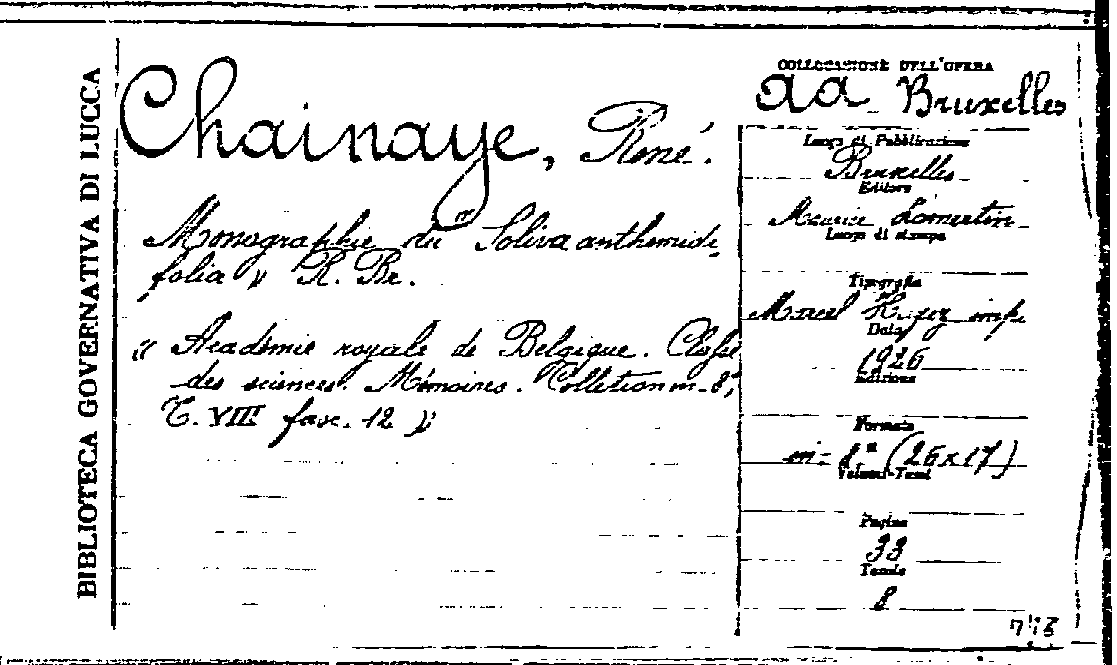 BIBLIOTECA GOVERNATIVA DI LUCCA
Chainaye, René.
Monographie du "Soliva anthemidi-
folia » R. Br.
« Académie royale de Belgique. Classe
des sciences. Mémoires. Colletion in-8°,
T. VIII fasc. 12 »
COLLOCAZIONE DELL'OPERA
aa Bruxelles
Luogo di Pubblicazione
Bruxelles
Editore
Maurice Lamertin
Luogo di stampa
Tipografia
Marcel Hayez imp.
Data
1926
Edizione
Formato
in-8° (26x17)
Volumi-Tomi
Pagine
33
Tavole
8